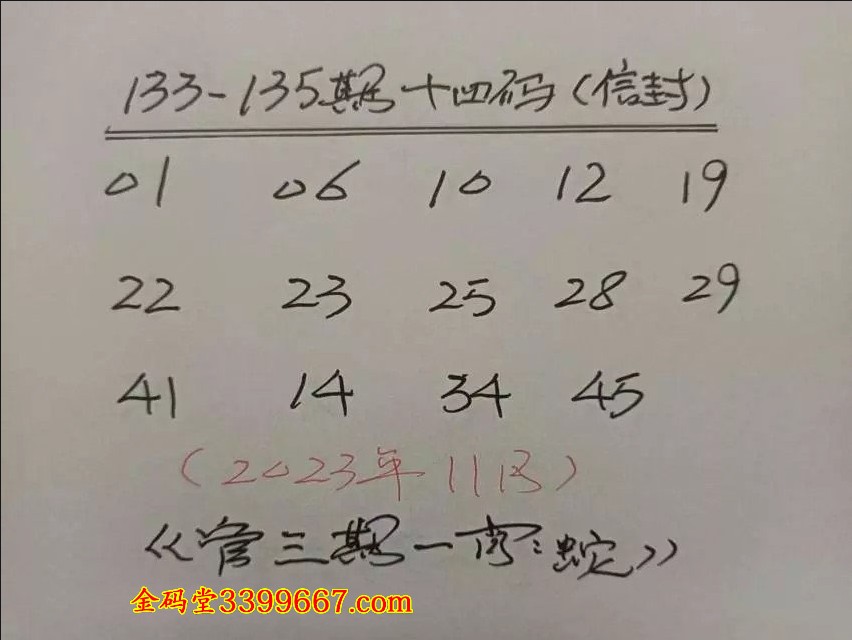 133-135期十四码(信封)
01 06 10 12 19
22 23 25 28 29
41 14 34 45
(2023年11月)
《管三期一肖:蛇》
金码堂3399667.com